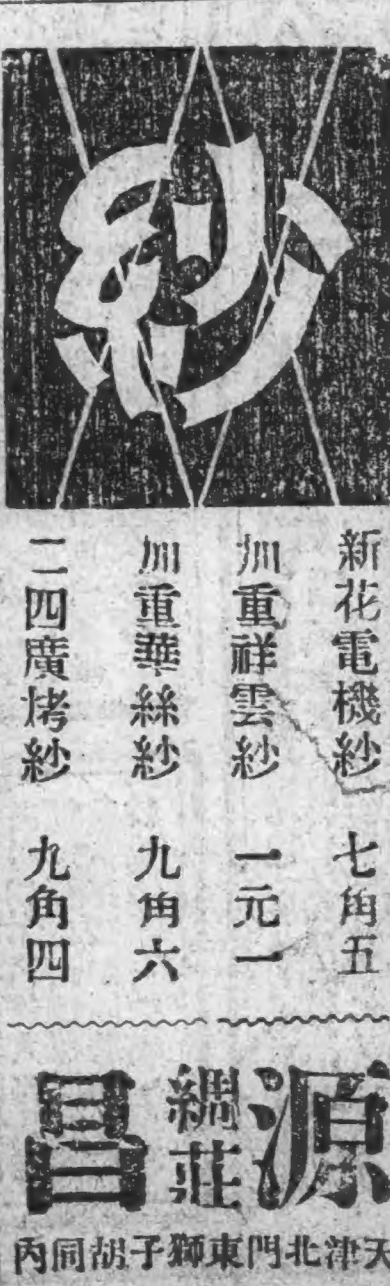 紗
新花電機紗 七角五
加重祥雲紗 一元一
加重華絲紗 九角六
二四廣烤紗 九角四
源昌
綢莊
天津北門東獅子胡同內